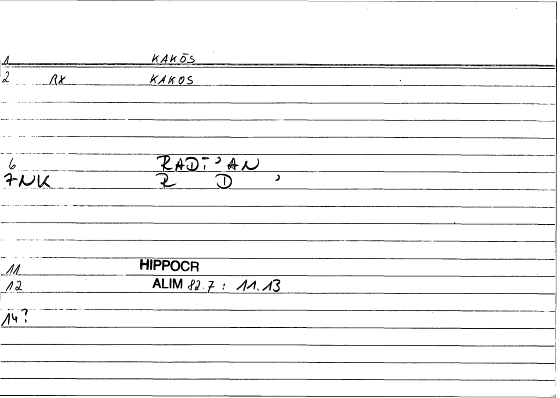 1 KAKŌS
2 RX KAKOS
6 RADĪ'AN
7NK R D '
11 HIPPOCR
12 ALIM 82.7 : 11.13
14?